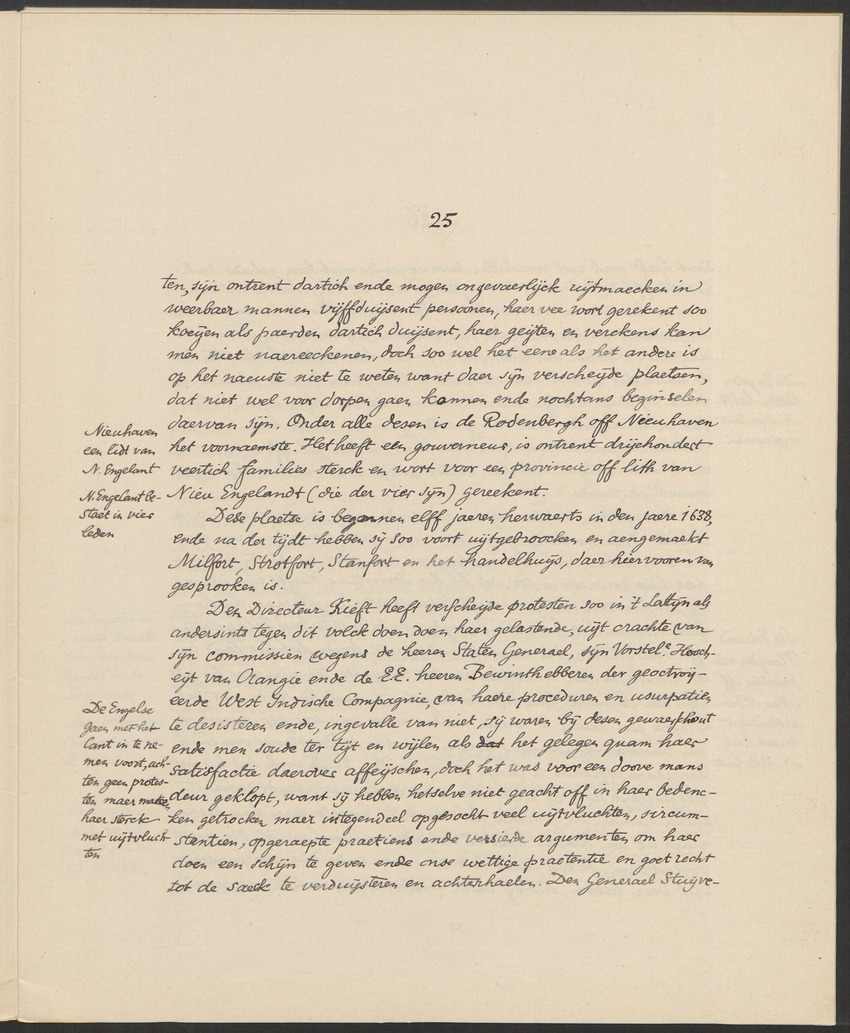 25
ten, sijn ontrent dartich ende mogen ongevaerlijck uijtmaecken in
weerbaer mannen vijffduijsent persoonen, haer vee wort gerekent soo
koeijen als paerden dartich duijsent, haer geijten en verekens kan
men niet naereeckenen, doch soo wel het eene als het andere is
op het naeuste niet te weten want daer sijn verscheijde plaetsen,
dat niet wel voor dorpen gaen konnen ende nochtans beginselen
daervan sijn. Onder alle desen is de Rodenbergh off Nieuhaven
het voornaemste. Het heeft een gouverneur, is ontrent drijehondert
veertich families sterck en wort voor een provincie off lith van
Nieu Engelandt (die der vier sijn) gereekent.
Nieuhaven
een lidt van
N. Engelant
N. Engelant be-
staet in vier
leden
Dese plaetse is begonnen elff jaeren herwaerts in den jaere 1638,
ende na der tijdt hebben sij soo voort uijtgebroocken en aengemaekt
Milfort, Strotfort, Stanfort en het handelhuijs, daer hier vooren van
gesprooken is.
Den Directeur Kieft heeft verscheijde protesten soo in 't Lattijn als
andersints tegen dit volck doen doen haer gelastende, uijt crachte van
sijn commissien wegens de heeren Staten Generael, sijn Vorstel.e Hooch-
eijt van Orangie ende de E.E. heeren Bewinthebberen der geoctroij-
eerde West Indische Compagnie, van haere proceduren en usurpatien
te desisteren ende, ingevalle van niet, sij waren bij desen gewaerschout
ende men soude ter tijt en wijlen als dat het gelegen quam haer
satisfactie daerover affeijschen, doch het was voor een doove mans
deur geklopt, want sij hebben hetselve niet geacht off in haer bedenc-
ken getrocken maer integendeel opgesocht veel uijtvluchten, circum-
stentien, opgeraepte praetiens ende versierde argumenten om haer
doen een schijn te geven ende onse wettige praetentie en goet recht
tot de saeck te verduijsteren en achterhaelen. Den Generael Stuijve-
De Engelse
gaen met het
lant in te ne-
men voort, ach-
ten geen protes-
ten maer maken
haer sterck
met uijtvluch-
ten